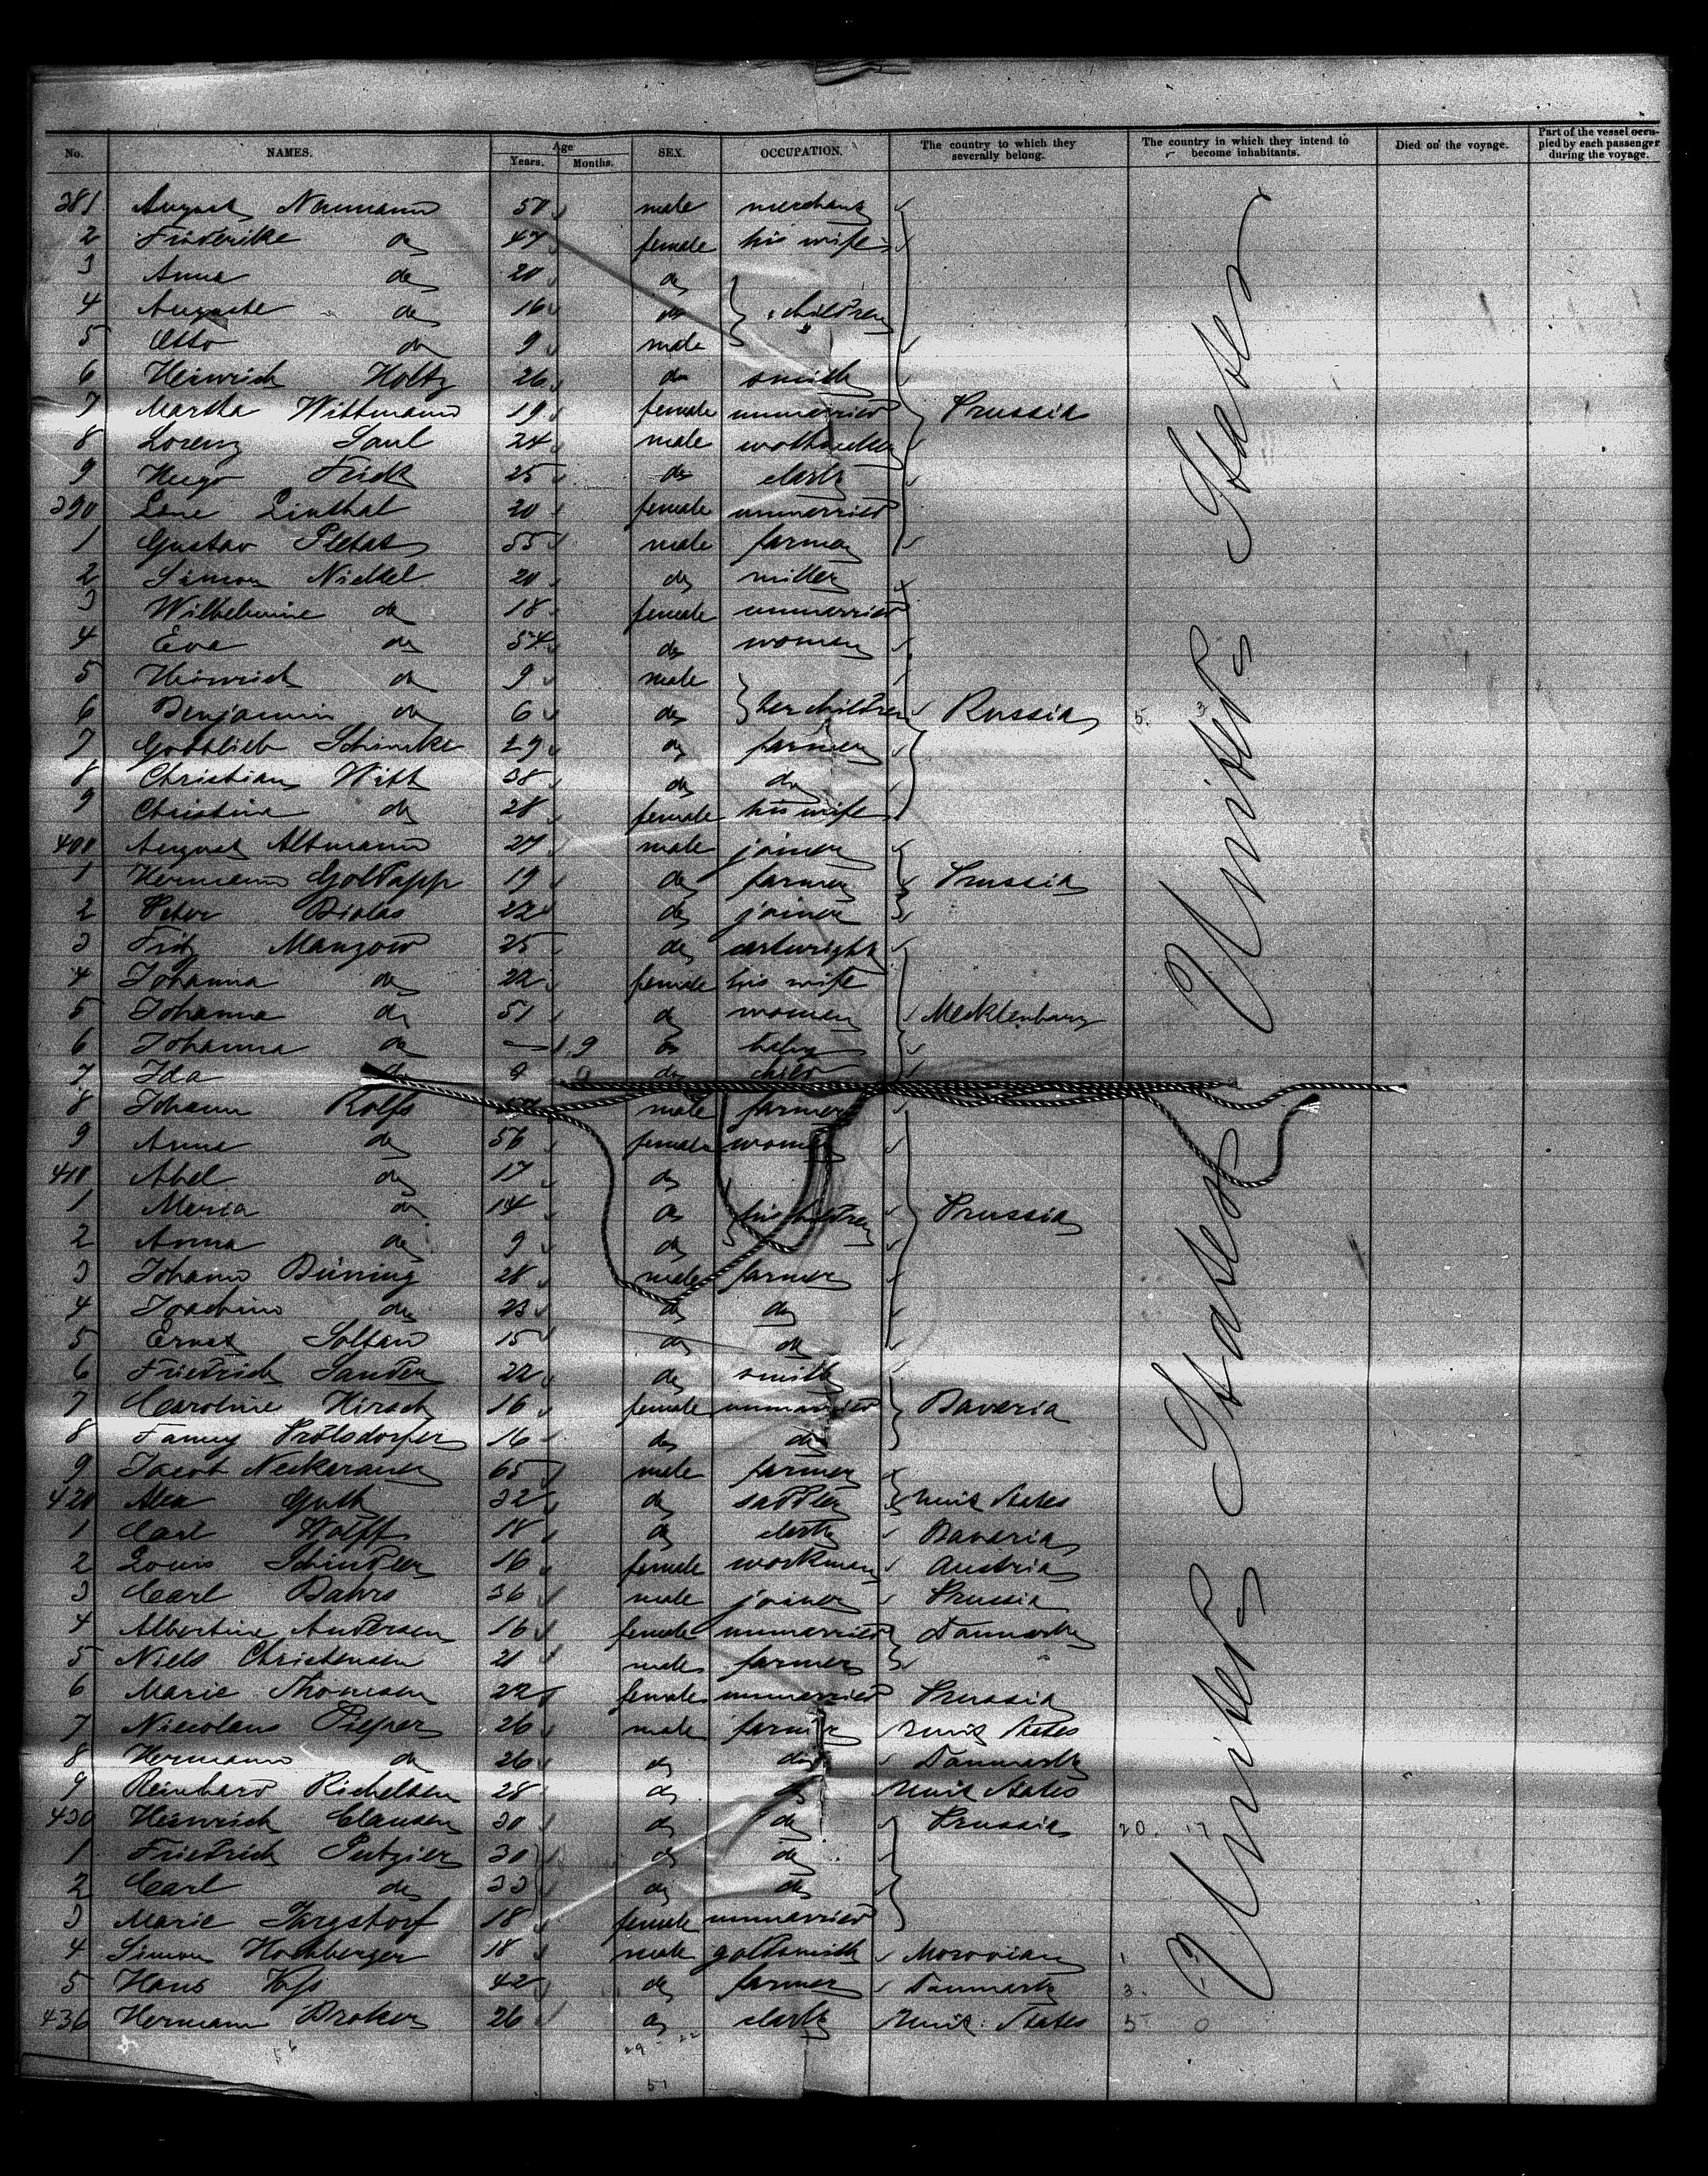 No. NAMES. Age Years. Months. SEX. OCCUPATION. The country to which they severally belong. The country in which they intend to become inhabitants. Died on the voyage. Part of the vessel occupied by each passenger during the voyage.
381 August Neumann 50 male merchant
2 Friederike do 47 female his wife
3 Anna do 20 do
4 Auguste do 16 do children
5 Otto do 9 male
6 Heinrich Holtz 26 do smith
7 Martha Wittmann 19 female unmarried Prussia
8 Lorenz Saul 24 male
9 Hugo Frick 25 do clark
390 Lene Linthal 20 female unmarried
1 Gustav 55 male farmer
2 Simon Nickel 20 do miller
3 Wilhelmine do 18 female unmarried
4 Eva do 54 do women
5 Heinrich do 9 male
6 Benjamin do 6 do her children Russia
7 Gottlieb Schimke 29 do farmer
8 Christian Witt 38 do do
9 Christine do 28 female his wife
400 August Altmann 27 male joiner
1 Hermann Goldapp 19 do farmer Prussia
2 Peter Bialas 22 do joiner
3 Fritz Manzow 25 do cartwright
4 Johanna do 22 female his wife
5 Johanna do 51 do women Mecklenburg
6 Johanna do — 9 do baby
7 Ida do 9 do child
8 Johann Rolfs male farmer
9 Anna do 56 female women
410 Abel do 17 do
1 Maria do 14 do his children Prussia
2 Anna do 9 do
3 Johann Düring 28 male farmer
4 Joachim do 23 do do
5 Ernst Soltau 15 do do
6 Friedrich Sander 22 do smith
7 Caroline Hirsch 16 female unmarried Bavaria
8 Fanny 16 do do
9 Jacob Neckarauer 65 male farmer
420 Alex Guth 32 do saddler Unit States
1 Carl Wolff 18 do clark Bavaria
2 Louis Schindler 16 female workman Austria
3 Carl Dahrs 36 male joiner Prussia
4 Albertine Andersen 16 female unmarried Danmark
5 Niels Christensen 21 male farmer
6 Marie Thomsen 22 female unmarried Prussia
7 Niccolaus Pieper 26 male farmer Unit States
8 Hermann do 26 do do Danmark
9 Reinhard Richelsen 28 do do Unit States
430 Heinrich Clausen 30 do do Prussia 20. 17
1 Friedrich Putzier 30 do do
2 Carl do 33 do do
3 Marie 18 female unmarried
4 Simon Hochberger 18 male goldsmith Moravian 1
5 Hans 42 do farmer Danmark 3.
436 Hermann Broker 26 do clark Unit. States 5 0
United States
United States
51